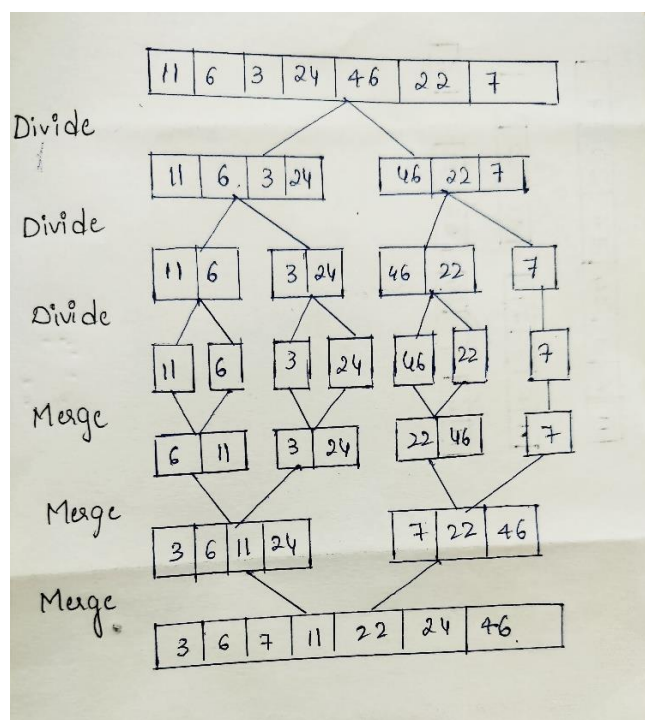 11 6 3 24 46 22 7
Divide
11 6 3 24 46 22 7
Divide
11 6 3 24 46 22 7
Divide
11 6 3 24 46 22 7
Merge
6 11 3 24 22 46 7
Merge
3 6 11 24 7 22 46
Merge
3 6 7 11 22 24 46